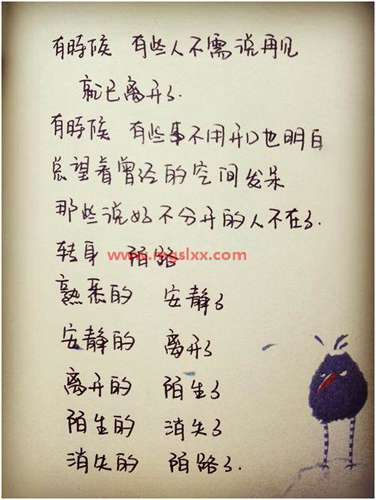 有時候 有些人不需说再见
就已离开了
有時候 有些事不用开口也明白
总望着曾经的空间发呆
那些说好不分开的人不在了.
转身 陌路
熟悉的 安静了
安静的 离开了
离开的 陌生了
陌生的 消失了
消失的 陌路了.